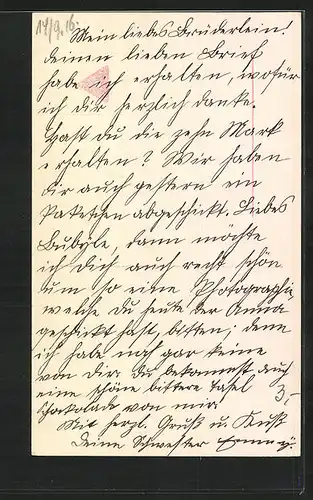 14/9.16.
Mein liebes Brüderlein!
deinen lieben Brief
habe ich erhalten, wofür
ich dir herzlich danke.
Hast du die zehn Mark
erhalten? Wir haben
dir auch gestern ein
Paketchen abgeschickt. Liebes
Bubyle, dann möchte
ich dich auch recht schön
um so eine Photographie,
welche du heute der Anna
geschickt hast, bitten; denn
ich habe noch gar keine
von dir. du bekommst auch
eine schöne bittere Tafel
Schokolade von mir.
3,-
Mit herzl. Gruß u. Kuß
deine Schwester